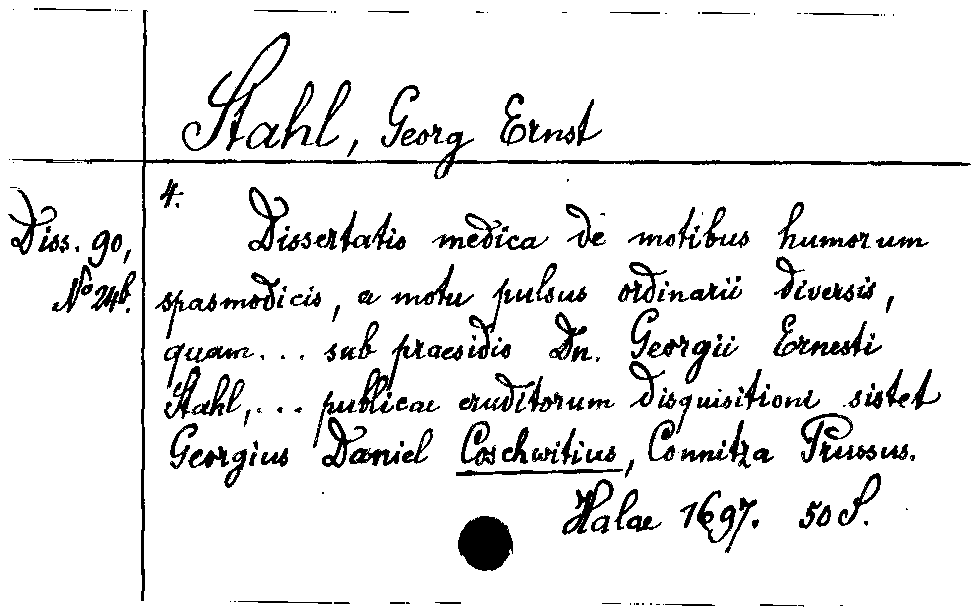 Stahl, Georg Ernst
4.
Diss. 90,
No 24b.
Dissertatio medica de motibus humorum
spasmodicis, a motu pulsus ordinarii diversis,
quam... sub praesidio Dn. Georgii Ernesti
Stahl,... publicae eruditorum disquisitioni sistet
Georgius Daniel Coschwitius, Connitza Prussus.
Halae 1697. 50 S.